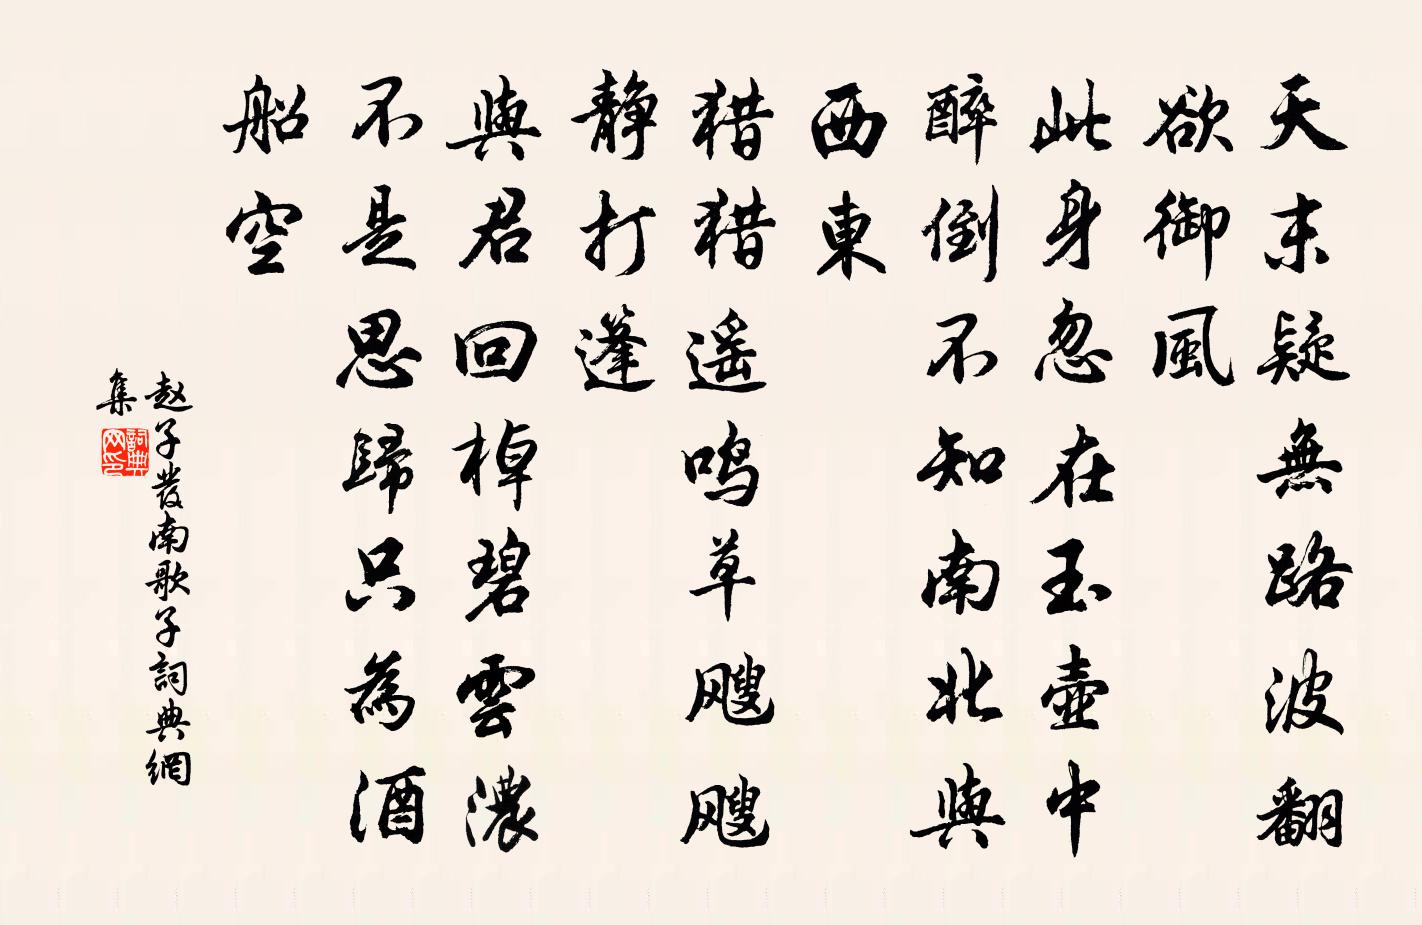 天末疑無路波翻
欲御風
此身忽在玉壺中
醉倒不知南北與
西東
猎猎遥鸣草飕飕
静打蓬
與君回棹碧雲濃
不是思歸只為酒
船空
赵子發南歌子詞典網
集
詞典
网印